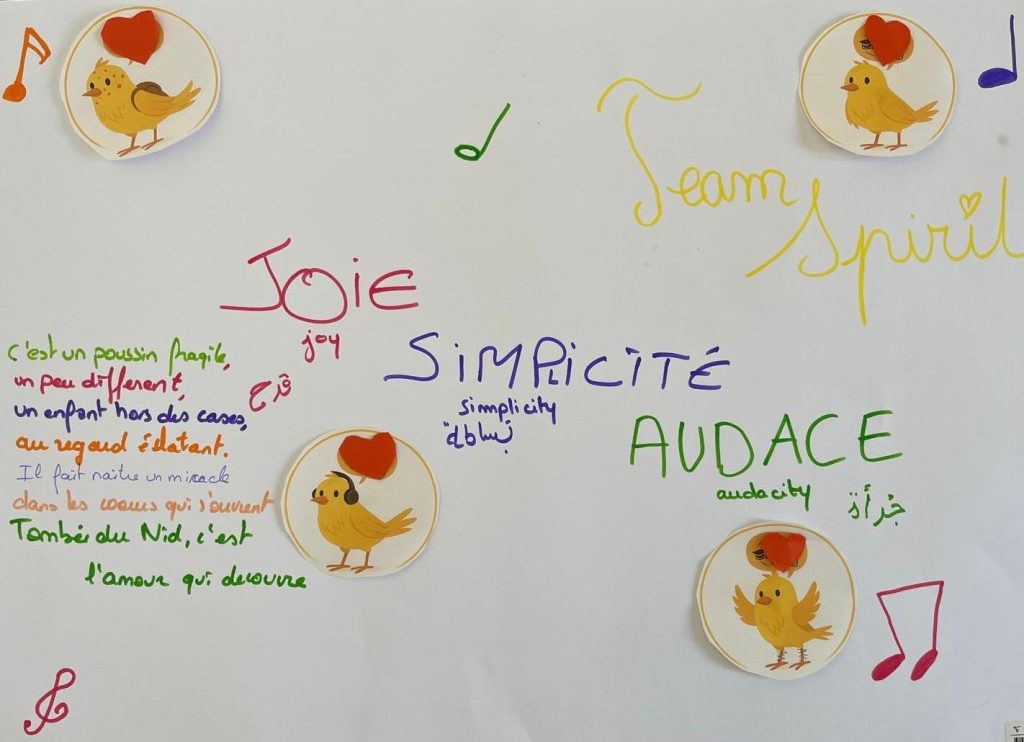 Team
Spirit
JOIE
joy
فرح
SiMPLiCiTÉ
simplicity
AUDACE
audacity
جُرأة
C'est un poussin fragile,
un peu different,
un enfant hors des cases,
au regard éclatant.
Il fait naître un miracle
dans les coeurs qui s'ouvrent
Tombé du Nid, c'est
l'amour qui decouvre